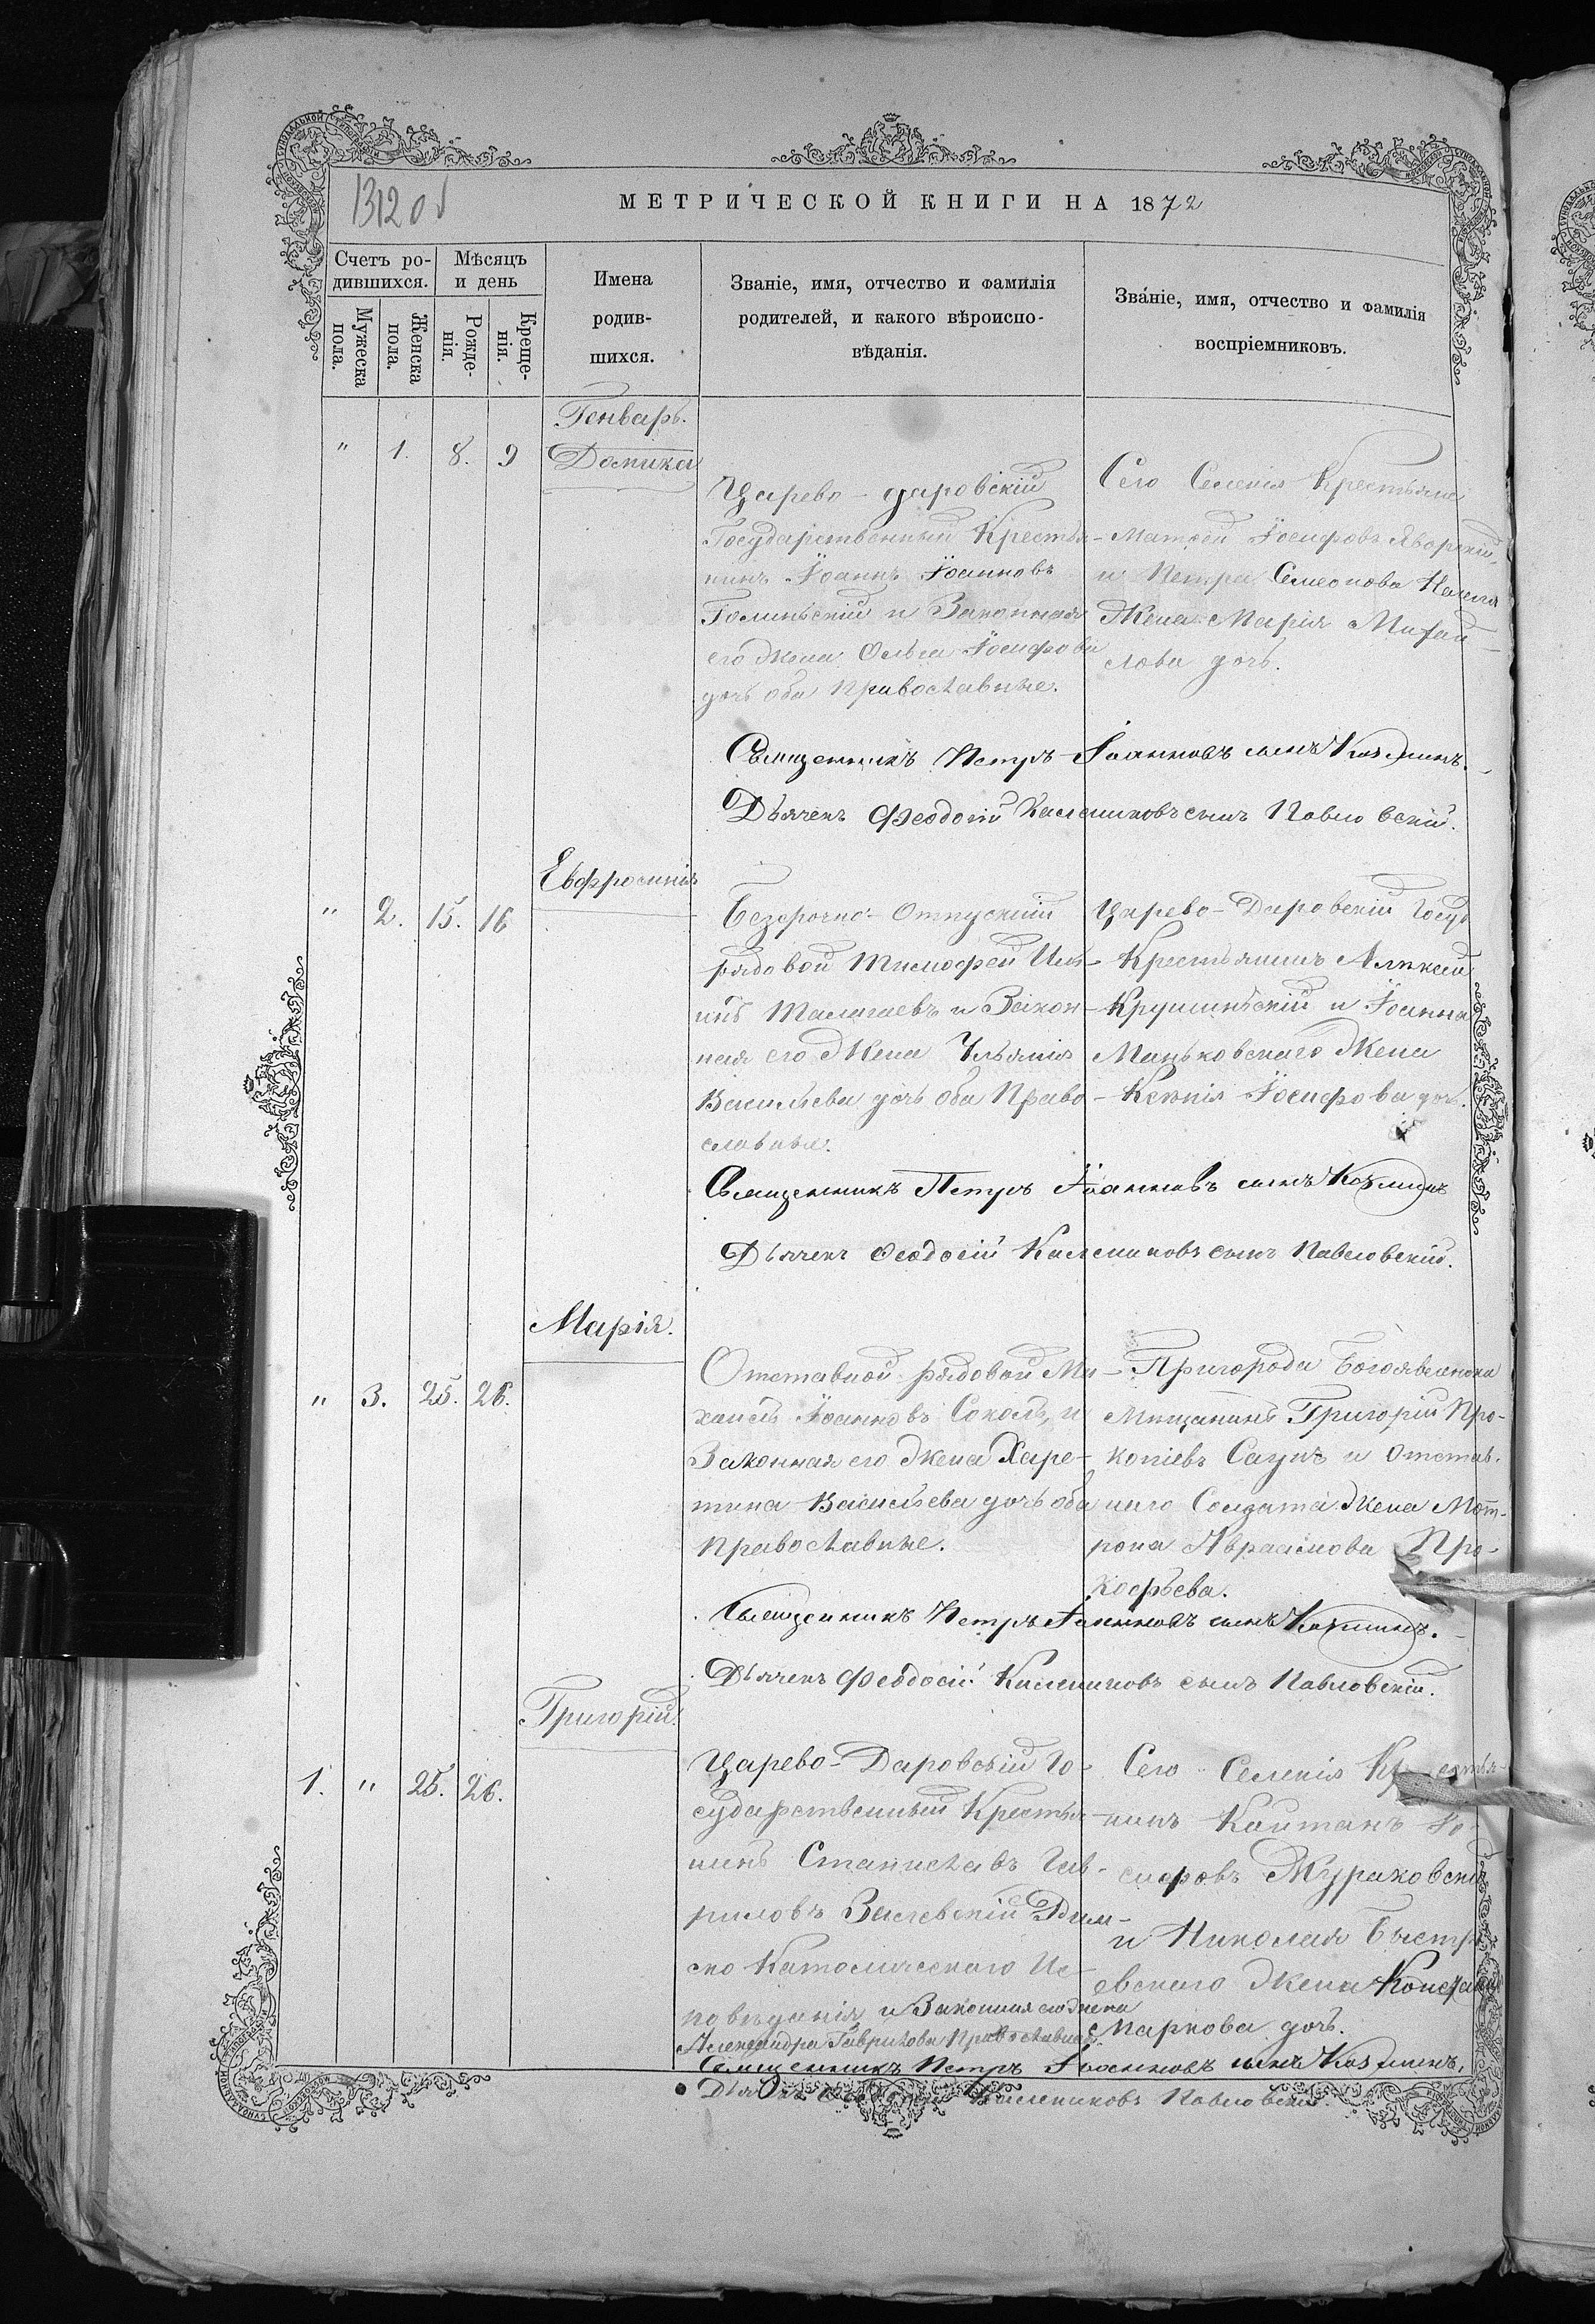 1312 об
МЕТРИЧЕСКОЙ КНИГИ НА 1872
Счетъ ро-
дившихся.
Мѣсяцъ
и день
Мужеска
пола.
Женска
пола.
Рожде-
нія.
Креще-
нія.
Имена
родив-
шихся.
Званіе, имя, отчество и фамилія
родителей, и какого вѣроиспо-
вѣданія.
Званіе, имя, отчество и фамилія
воспріемниковъ.
Генварь.
" 1. 8. 9
Домника
Царево-даровскій
Государственный Крестья-
нинъ Іоаннъ Іоанновъ
Голиньскій и Законная
его жена Ольга Іосифова
дочь оба Православные.
Сего Селенія Крестьяне
Матѳей Іосифовъ Яворскій
и Петра Семеонова
Жена Марія Михай-
лова дочь.
Священникъ Петръ Іоанновъ сынъ Козминъ.
Дьячекъ Феодосій Калениковъ сынъ Павловскій.
Евфросинія
" 2. 15. 16
Безсрочно-Отпускный
рядовой Тимофей Иль-
инъ и Закон-
ная его Жена Ульянія
Васильева дочь оба Право-
славные.
Царево-Даровскій Госуд
Крестьянинъ Алексѣй
Крушинскій и Іоанна
Маньковскаго Жена
Ксенія Іосифова дочь.
Священникъ Петръ Іоанновъ сынъ Козминъ
Дьячекъ Феодосій Калениковъ сынъ Павловскій.
Марія.
" 3. 25. 26.
Отставной рядовой Ми-
хаилъ Іоанновъ Соколъ, и
Законная его жена Харе-
тина Васильева дочь оба
Православные.
Пригорода Богоявленска
Мѣщанинъ Григорій Про-
копіевъ и Отстав-
ного Солдата Жена Мат-
рона Авраамова Про-
кофьева.
Священникъ Петръ Іоанновъ сынъ Козминъ.
Дьячекъ Феодосій Калениковъ сынъ Павловскій.
Григорій.
1. " 25. 26.
Царево-Даровскій Го-
сударственный Крестья-
нинъ Станиславъ Гав-
риловъ Рим-
ско Католического Ис-
повѣданія и Законная его Жена
Александра Гаврилова Православная.
Сего Селенія Крестья-
нинъ Каитанъ Іо-
сифовъ Жураковскій
и Николая
евскаго Жена
Маркова дочь.
Священникъ Петръ Іоанновъ сынъ Козминъ.
Калениковъ Павловскій.